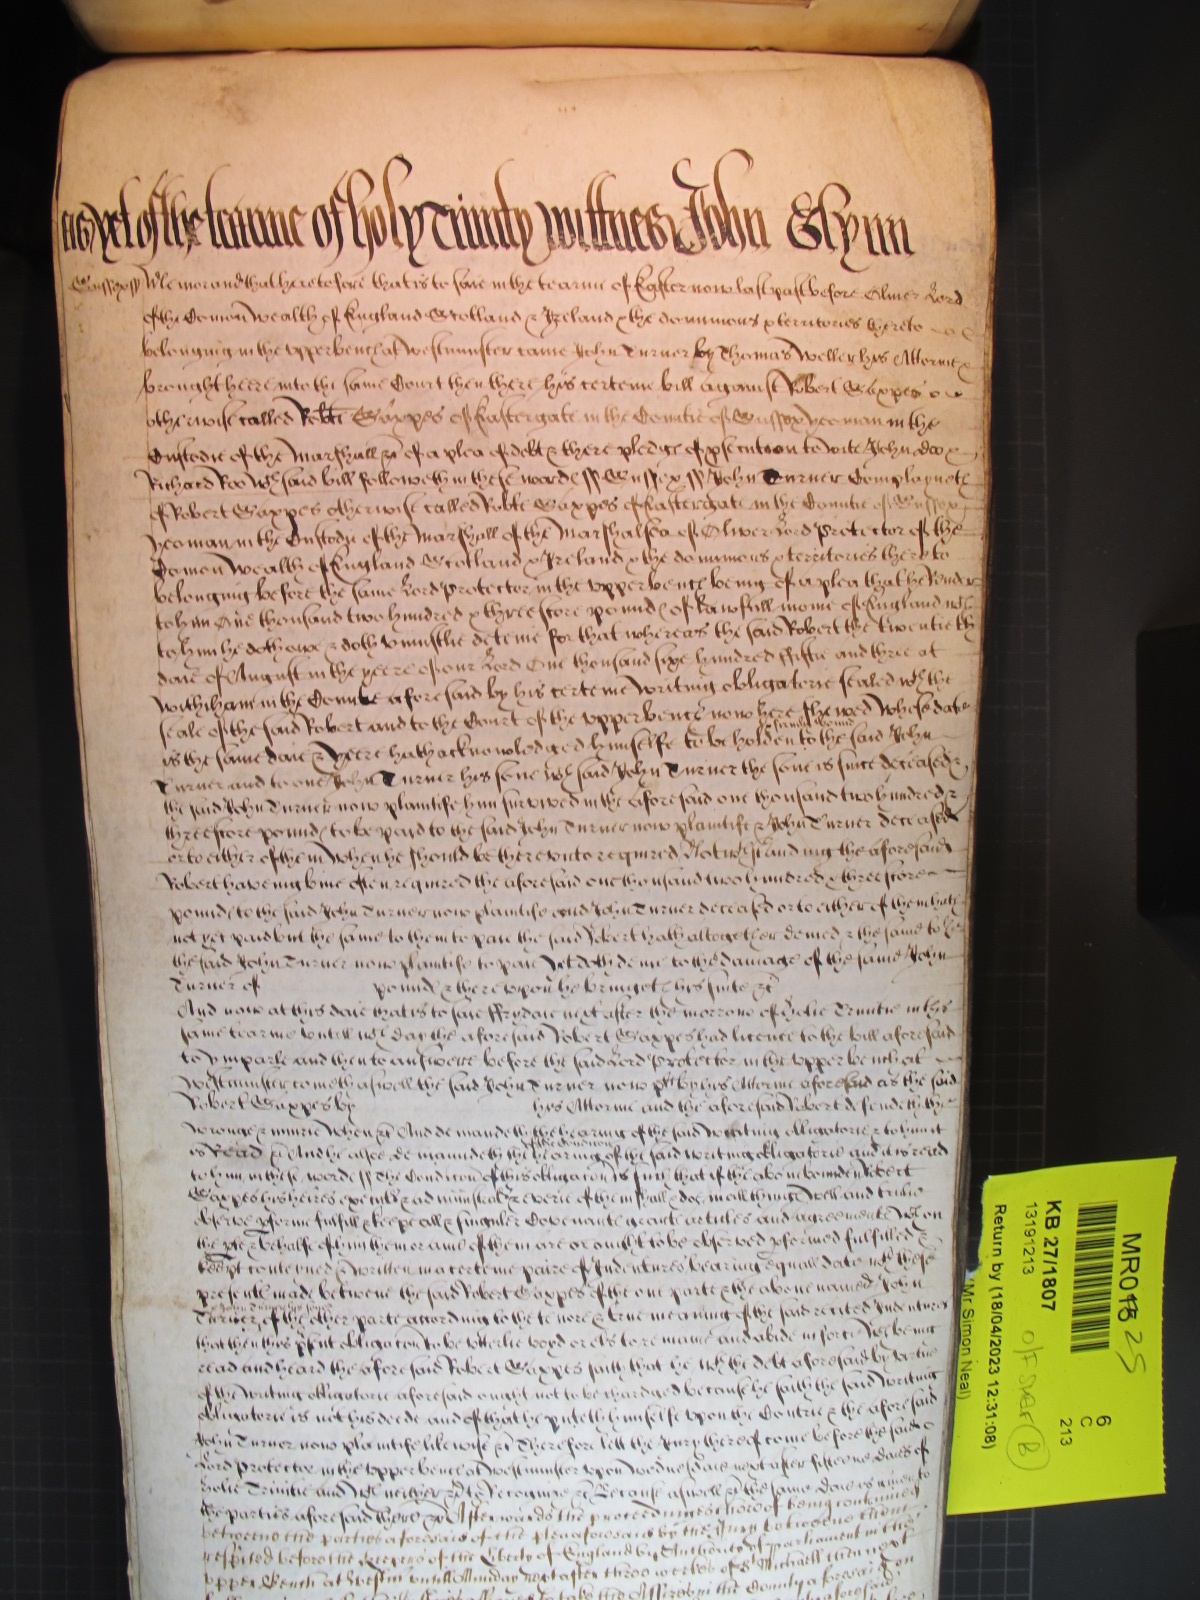 as yet of the tearme of holy Trinity Wittnes John Glynn
Sussex ss Memorand that heretofore that is to saie in the tearme of Easter now last past before Oliver Lord
of the Comon wealth of England Scotland & Ireland & the dominions & territories thereto
belonging in the upper bench at Westminster came John Turner by Thomas Weller his Attornie &
brought heere into the same Court then there his certeine bill against Robert Gaxpes
otherwise called Robte Gaxpes of Eastergate in the Countie of Sussex yeoman in the
Custodie of the Marshall &c of a plea of debt & there pledges of psecution to wite John doo
Richard Roo wch said bill followeth in these words ss Sussex ss John Turner Complayneth
of Robert Gaxpes otherwise called Robte Gaxpes of Eastergate in the Countie of Sussex
yeoman in the Custodie of the Marshall of the Marshalsea of Oliver Lord Protector of the
Comon wealth of England Scotland & Ireland & the dominions & territories thereto
belonging before the same Lord Protector in the upper bench being of a plea that he Render
to him One thousand two hundred & three score pounds of lawfull monie of England wch
to him he doth owe & doth uniustlie deteine for that whereas the said Robert the twentieth
daie of August in the yeere of our Lord One thousand sixe hundred fiftie and three at
in the Countie aforesaid by his certeine writing obligatorie sealed wth the
seale of the said Robert and to the Court of the upper bench now heere shewed whose date
is the same daie & yeere hath acknowledged himselfe to be holden & firmely bound to the said John
Turner and to one John Turner his sone wch said John Turner the sone is since deceased &
the said John Turner now plaintife him survived in the aforesaid one thousand two hundred &
three score pounds to be paid to the said John Turner now plaintife & John Turner deceased
or to either of them when he should be thereunto required Notwthstanding the aforesaid
Robert haveing bine often required the aforesaid one thousand two hundred & three score
pounds to the said John Turner now plaintife and John Turner deceased or to either of them hath
not yet paid but the same to them to paie the said Robert hath altogether denied & the same to
the said John Turner now plaintife to paie yet doth denie to the damage of the same John
Turner of pounds & thereupon he bringeth his suite &c
And now at this daie that is to saie ffrydaie next after the morrow of holie Trinitie in this
same tearme untill wch day the aforesaid Robert Gaxpes had licence to the bill aforesaid
to ymparle and then to answere before the said Lord Protector in the upper bench at
Westminster cometh aswell the said John Turner now plt by his Attornie aforesaid as the said
Robert Gaxpes by his Attornie and the aforesaid Robert defendeth the
wronge & iniurie when &c And demandeth the hearing of the said writing obligatorie & to him it
is Read &c And he alsoe demandeth the hearing of the Condicon of the said writing obligatorie and it is read
to him in these words ss The Condicon of this obligacon is such that if the above bounden Robert
Gaxpes his heires executrs & administratrs & everie of them shall & doe in all things well and trulie
observe pforme fulfill & keepe all & singuler Covenants grants articles and agreements wch on
the pte & behalfe of him them or anie of them are or ought to be observed pformed fulfilled &
kept conteyned & written in a certeine paire of Indentures bearing equall date wth these
presents made betweene the said Robert Gaxpes of the one parte & the above named John
Turner & John Turner his sone of the other parte according to the tenore & true meaning of the said recited Indentures
that then this psent obligacon to be utterlie voyd or els to remaine and abide in force Wch being
read and heard the aforesaid Robert Gaxpes saith that he wth the debt aforesaid by vertue
of the writing obligatorie aforesaid ought not to be chardged because he saith the said writing
obligatorie is not his deede and of that he putteth himselfe upon the Contrie & the aforesaid
John Turner now plaintife likewise &c Therefore lett the Jury thereof come before the said
Lord Protector in the upper bench at Westminster upon wednesdaie next after fifteene daies of
holie Trinitie and wch neither &c To Recognize &c Because aswell &c the same daie is given to
the parties aforesaid there &c Afterwards the proceedings thereof being continued
betweene the parties aforesaid of the plea aforesaid by the Jury betweene them
respited before the keepers of the Liberty of England by Authority of parliament in the
upper Bench at Westmr untill Munday next after three weekes of St Michaell then next
MR018 25
KB 27/1807
13191213
6
C
213
Return by (18/04/2023 12:31:08)
(Mr Simon Neal)